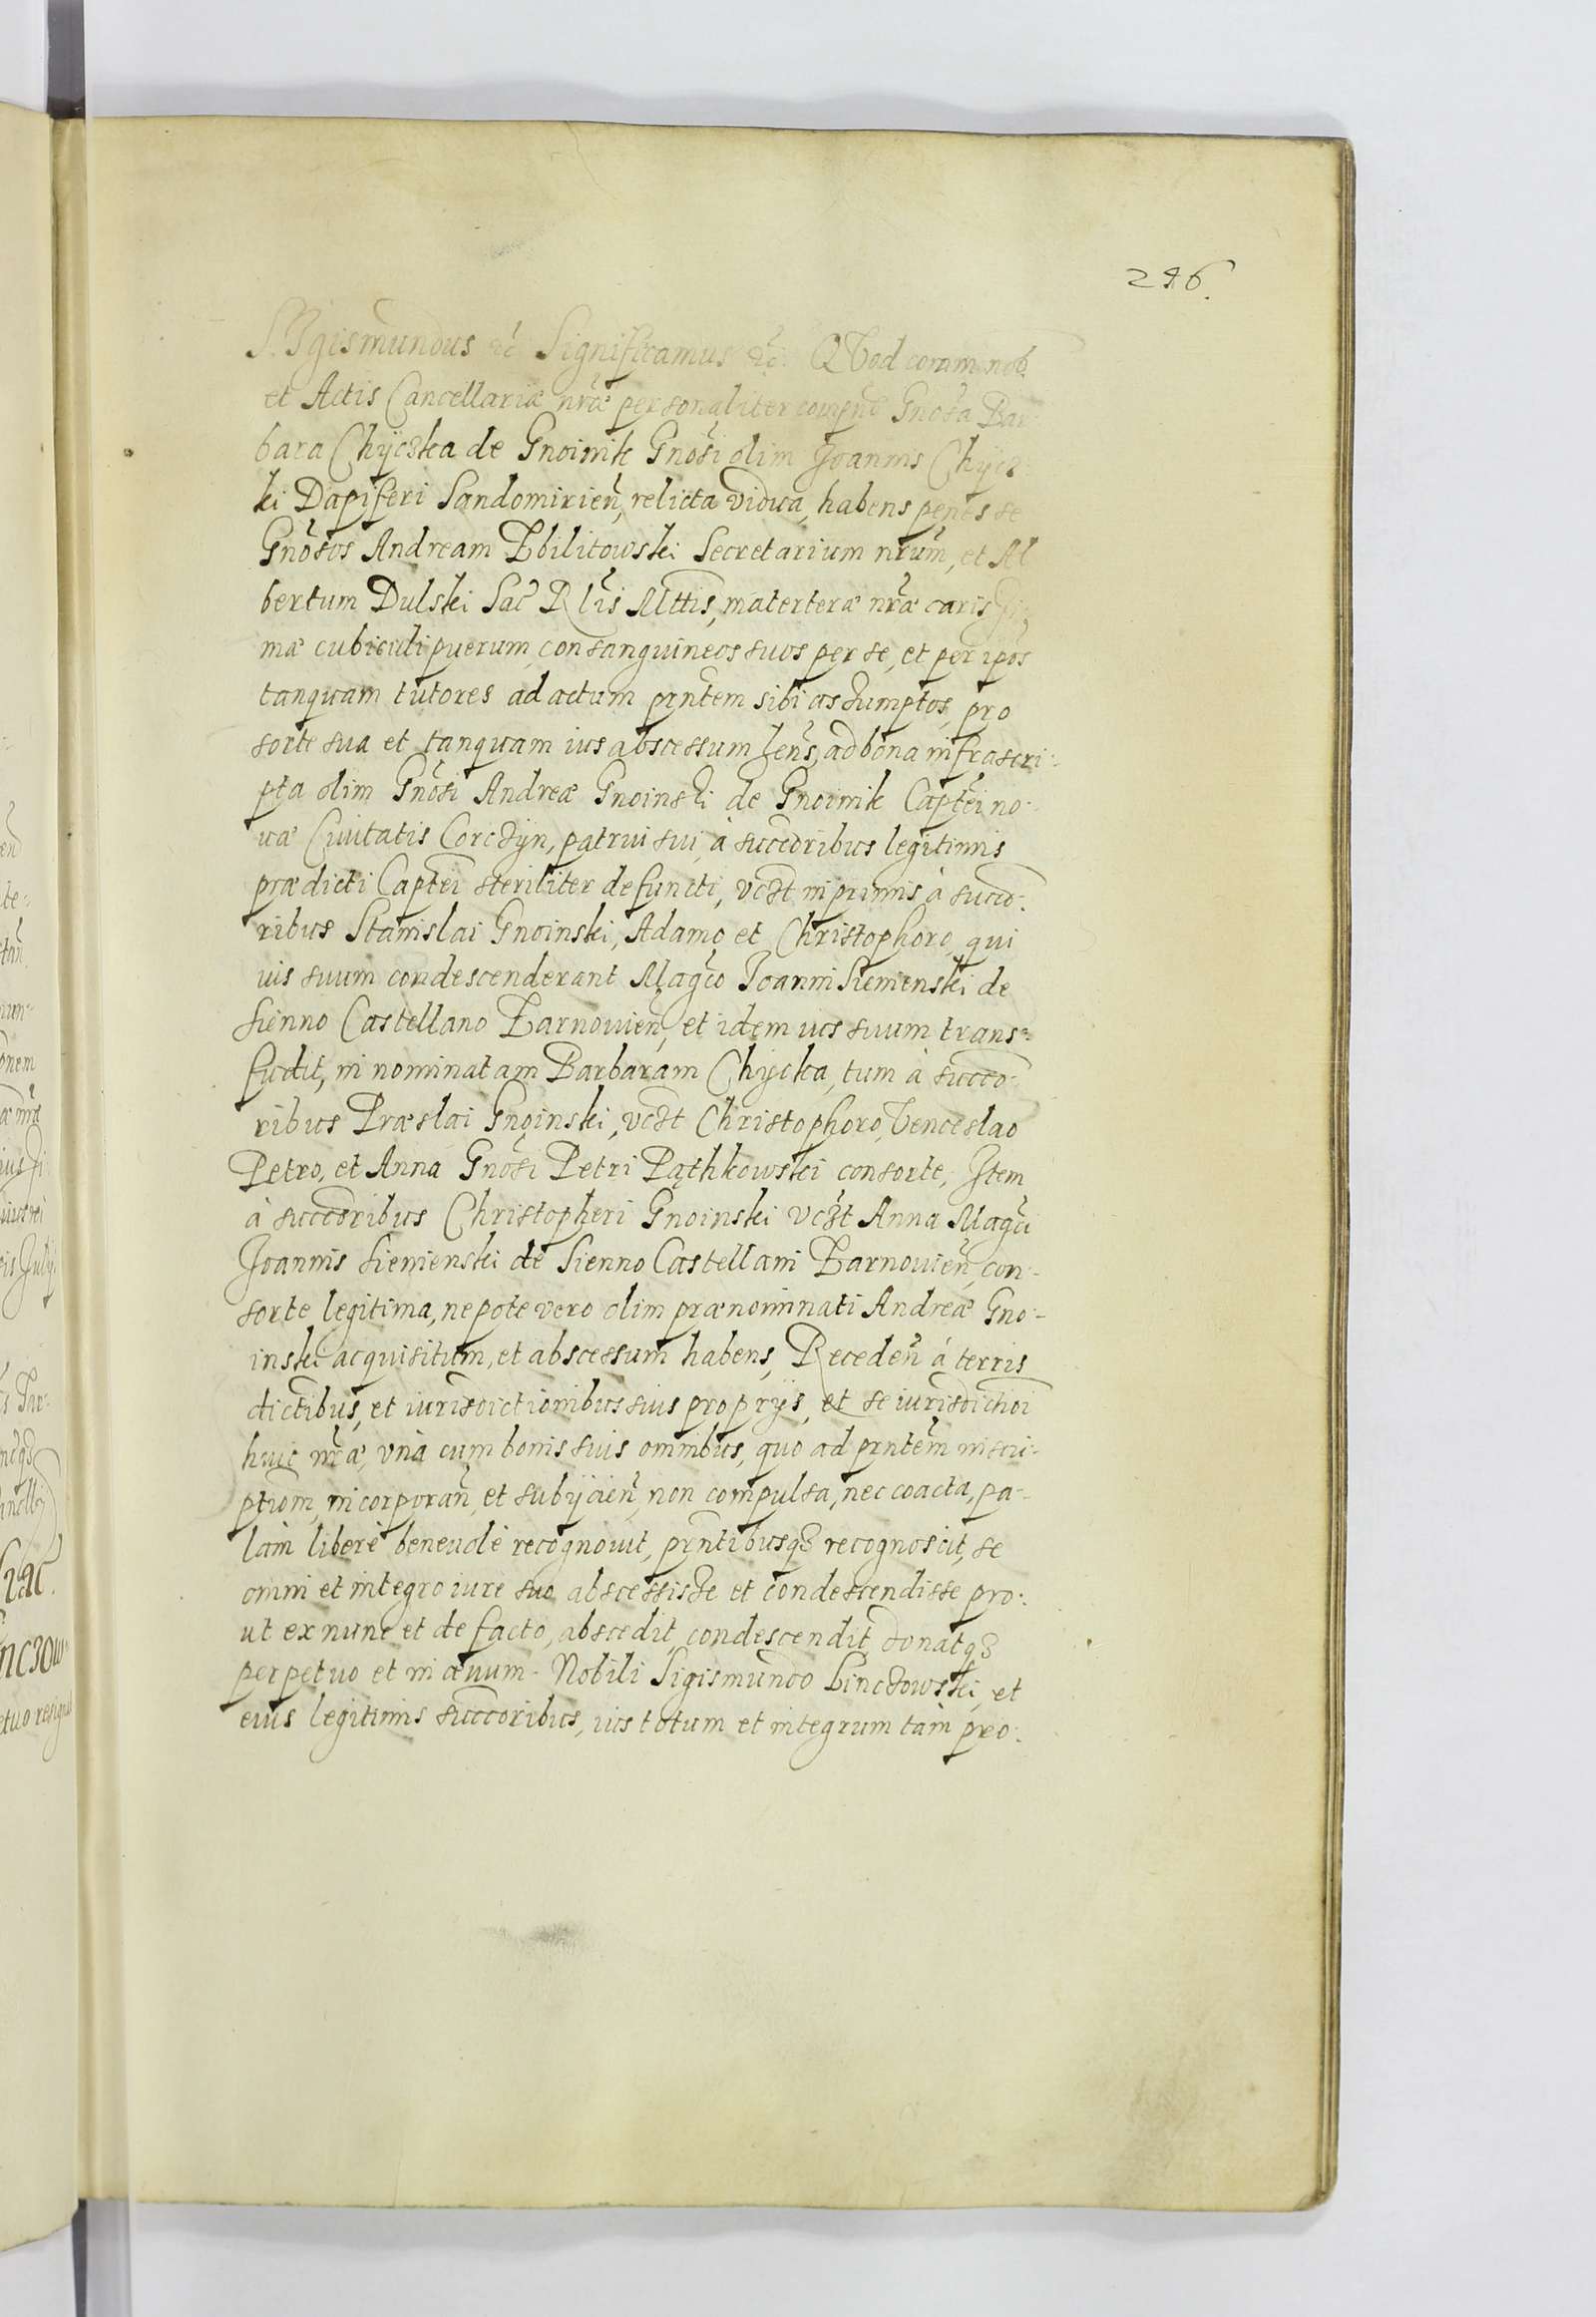 296.
SIgismundus &c Significamus &c. QVod coram nob.
et Actis Cancellariæ nr̃æ personaliter compn̄s Gnosa̅ Bar-
bara Chÿczka de Gnoinik Gnosi̅ olim Joannis Chÿcz-
ki Dapiferi Sandomirien̅, relicta vidua, habens penes se
Gno̅sos Andream Zbilitowski Secretarium nrum̅, et Al
bertum Dulski Sac̅ Rl̅is Mttis̅, materteræ nr̅æ caris̅si-
mæ cubiculi puerum, consanguineos suos per se, et per ipo̅s
tanquam tutores ad actum prn̅tem sibi assumptos, pro
sorte sua et tanquam ius abscessum hen̅s, ad bona infrascri:
pta olim Gno̅si Andreæ Gnoinski de Gnoinik Capte̅i no:
uæ Ciuitatis Corczÿn, patrui sui, à succo̅ribus legitimis
prædicti Capte̅i steriliter defuncti, vczt in primis à succo̅:
ribus Stanislai Gnoinski, Adamo et Christophoro, qui
ius suum condescenderant Magc̅o Joanni Siemenski de
Sienno Castellano Zarnouien̅, et idem ius suum trans-
fudit, in nominatam Barbaram Chÿcka, tum à succo̅-
ribus Præslai Gnoinski, vczt Christophoro, Venceslao
Petro, et Anna Gno̅si Petri Pąthkowski consorte, Item
à succo̅ribus Christopheri Gnoinski vczt Anna Magc̅i
Joannis Siemienski de Sienno Castellani Zarnouien̅, con-
sorte legitima, nepote vero olim prænominati Andreæ Gno-
inski acquisitum, et abscessum habens, Receden̅ à terris
dictibus̅, et iurisdictionibus suis proprÿs, et se iurisdictioi̅
huic nr̅æ, vnà cum bonis suis omnibus, quo ad prn̅tem inscri-
ptiom̅, incorporan̅, et subÿcien̅, non compulsa, nec coacta, pa-
lam liberè beneuolè recognouit, prn̅tibusq3 recognoscit, se
omni et integro iure suo abscessisse et condescendisse pro:
ut ex nunc et de facto, abscedit, condescendit, donatq3
perpetuo et in æuum. Nobili Sigismundo Linczowski, et
eius legitimis succo̅ribus, ius totum et integrum tam pro: